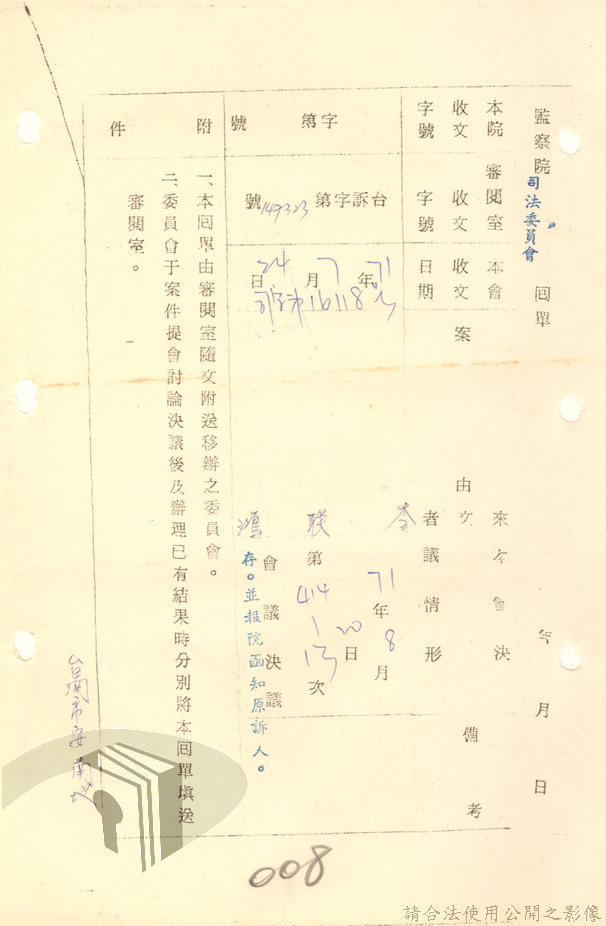 監察院 司法委員會 回單 年 月 日
本院收文字號
字第 號
審閱室收文字號
台訴字第149323號
本會收文日期
71年7月24日
16118
案由
來文者
李联鴻
本會決議情形
71年8月20日
第414次會議決議
存。並報院函知原訴人。
備考
附件
一、本回單由審閱室隨文附送移辦之委員會。
二、委員會于案件提會討論決議後及辦理已有結果時分別將本回單填送
審閱室。
台南市安南地
008
請合法使用公開之影像